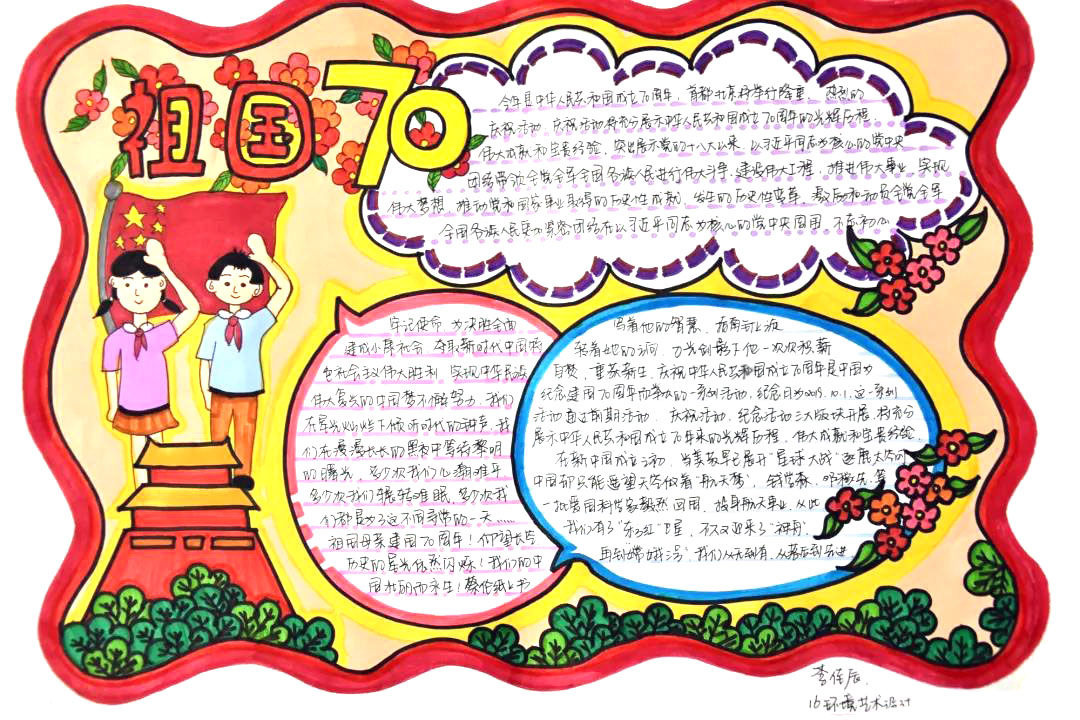 祖国70
今年是中华人民共和国成立70周年，首都北京将举行隆重、热烈的
庆祝活动。庆祝活动将充分展示中华人民共和国成立70周年的光辉历程、
伟大成就和宝贵经验，突出展示党的十八大以来，以习近平同志为核心的党中央
团结带领全党全军全国各族人民进行伟大斗争、建设伟大工程、推进伟大事业、实现
伟大梦想，推动党和国家事业取得的历史性成就、发生的历史性变革，激励和动员全党全军
全国各族人民更加紧密团结在以习近平同志为核心的党中央周围 不忘初心
牢记使命，为决胜全面
建成小康社会、夺取新时代中国特
色社会主义伟大胜利、实现中华民族
伟大复兴的中国梦不懈努力。我们
在星光灿烂下倾听时代的钟声，我
们在漫漫长长的黑夜中等待黎明
的曙光，多少次我们心潮难平
多少次我们辗转难眠，多少次我
们都是为了这不同寻常的一天……
祖国母亲建国70周年！仰望长空
历史的星光依然闪烁！我们的中
国
写着他的智慧，指南针上流
自焚，重获新生。庆祝中华人民共和国成立70周年是中国为
纪念建国70周年而举办的一系列活动，纪念日为2019.10.1，这一系列
活动通过前期活动、庆祝活动、纪念活动三大版块开展，将充分
展示中华人民共和国成立70年来的光辉历程、伟大成就和宝贵经验。
在新中国成立之初，当美苏早已展开"星球大战"逐鹿太空时
中国却只能遥望天空做着"航天梦"，钱学森、邓稼先等
一批爱国科学家毅然回国，投身航天事业，从此
我们有了"东方红"卫星，不久又迎来了"神舟"，
再到嫦娥三号，我们从无到有，从落后到先进
16环境艺术设计